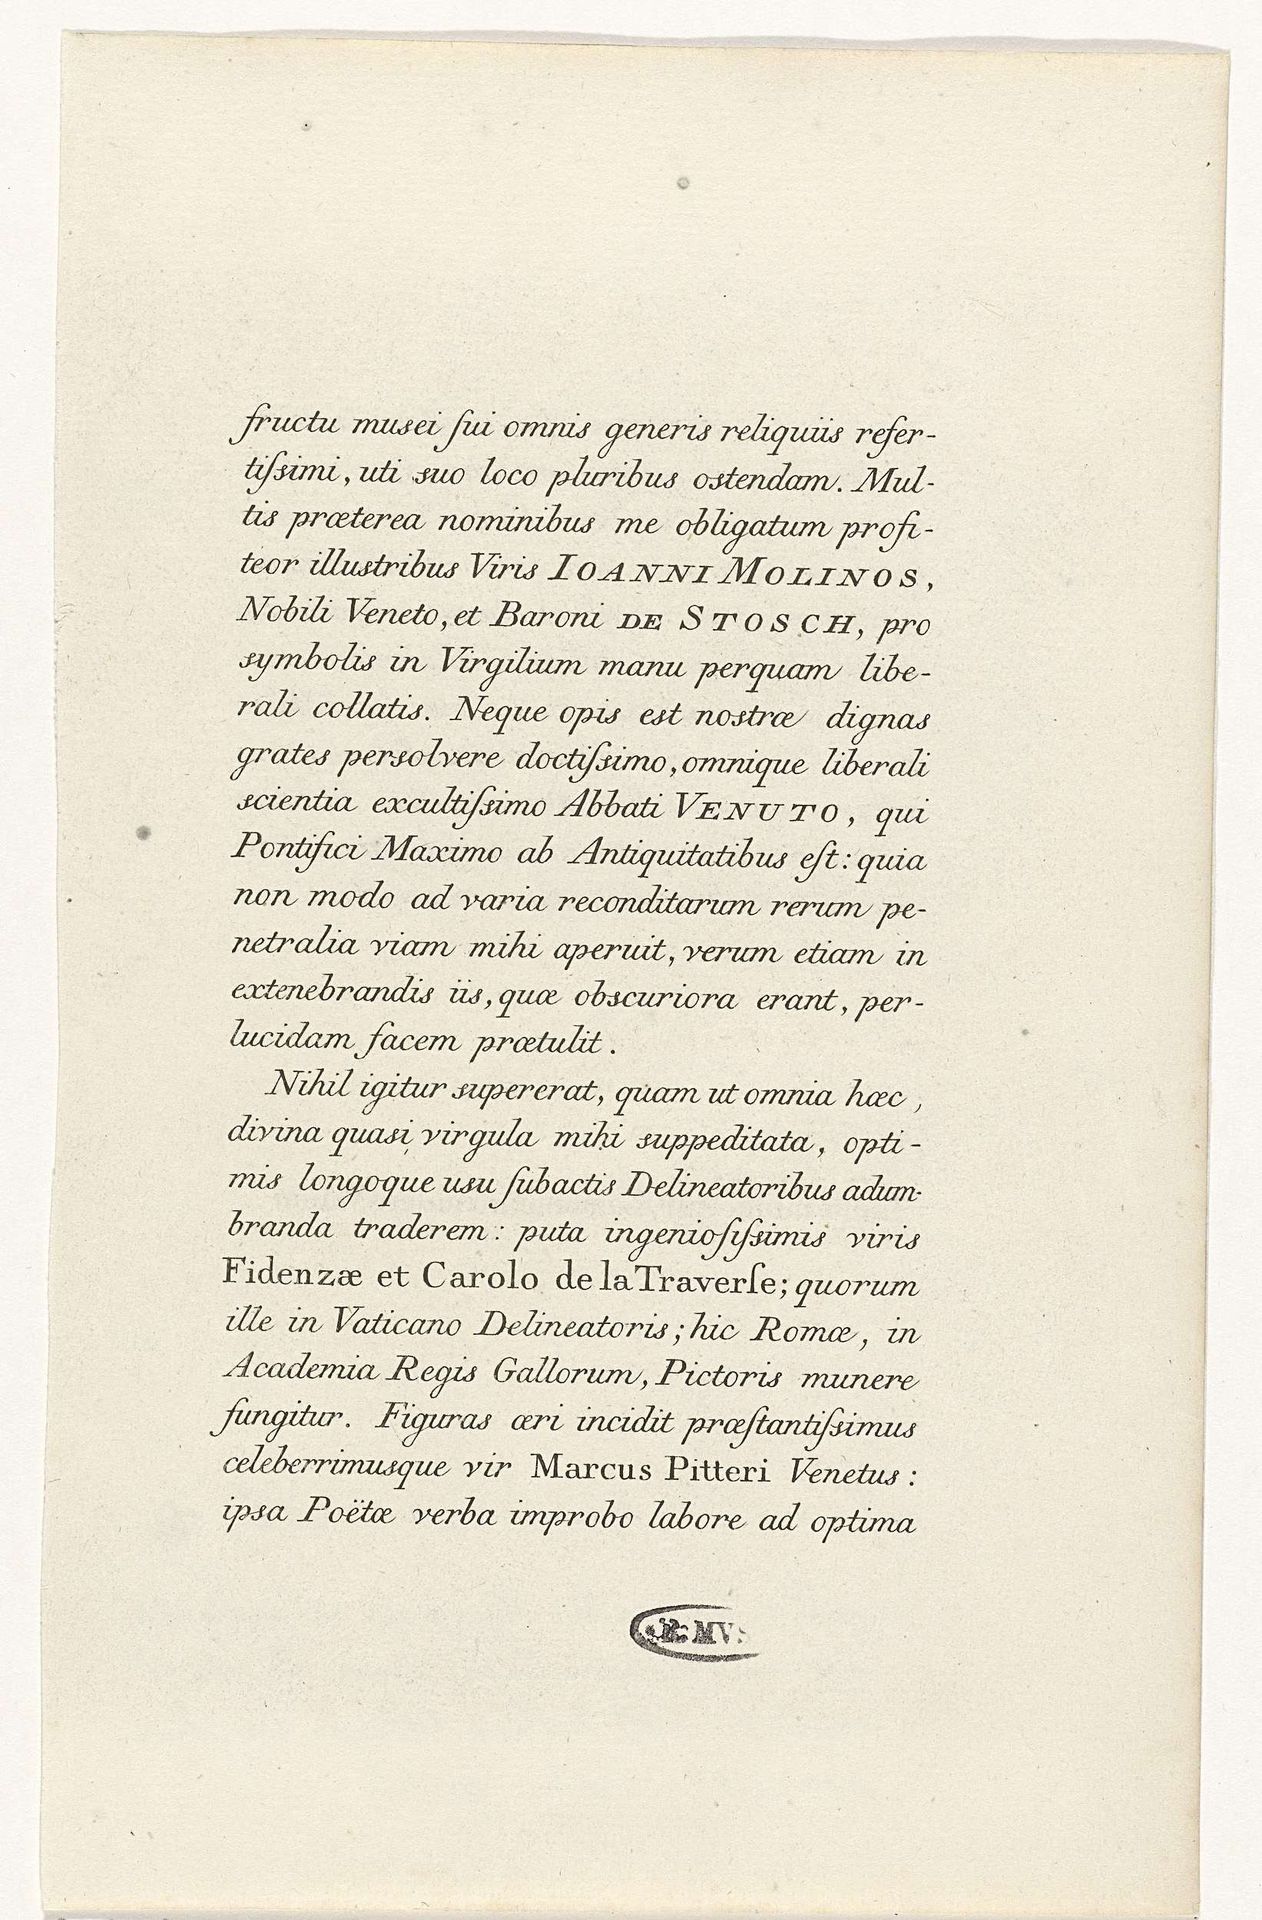 fructu musei ſui omnis generis reliquiis refer-
tiſsimi, uti suo loco pluribus ostendam. Mul-
tis præterea nominibus me obligatum profi-
teor illustribus Viris IOANNI MOLINOS,
Nobili Veneto, et Baroni DE STOSCH, pro
symbolis in Virgilium manu perquam libe-
rali collatis. Neque opis est nostræ dignas
grates persolvere doctiſsimo, omnique liberali
scientia excultiſsimo Abbati VENUTO, qui
Pontifici Maximo ab Antiquitatibus eſt: quia
non modo ad varia reconditarum rerum pe-
netralia viam mihi aperuit, verum etiam in
extenebrandis iis, quæ obscuriora erant, per-
lucidam facem prætulit.
Nihil igitur supererat, quam ut omnia hæc,
divina quasi virgula mihi suppeditata, opti-
mis longoque usu ſubactis Delineatoribus adum-
branda traderem: puta ingenioſiſsimis viris
Fidenzæ et Carolo de la Traverſe; quorum
ille in Vaticano Delineatoris; hic Romæ, in
Academia Regis Gallorum, Pictoris munere
fungitur. Figuras æri incidit præſtantiſsimus
celeberrimusque vir Marcus Pitteri Venetus:
ipsa Poëtæ verba improbo labore ad optima
R: MVS